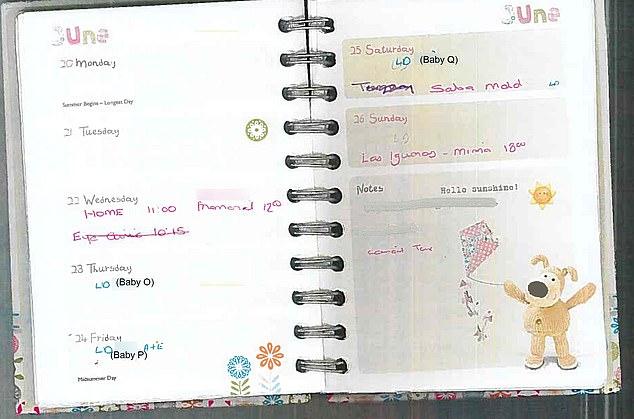 June
20 Monday
Summer Begins – Longest Day
21 Tuesday
22 Wednesday
HOME 11:00 12:00
Eye Clinic 10:15
23 Thursday
LD (Baby O)
24 Friday
LD A+E
(Baby P)
Midsummer Day
June
25 Saturday
LD (Baby Q)
Salsa LD
26 Sunday
LD
Las Iguanas -
Notes
Hello sunshine!
Tax